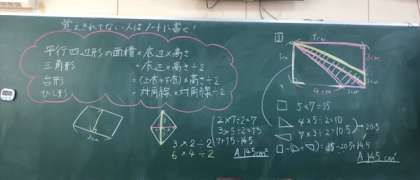 覚えきれてない人はノートに書く
平行四辺形の面積=底辺×高さ
三角形 =底辺×高さ÷2
台形 =(上底+下底)×高さ÷2
ひし形 =対角線×対角線÷2
3×2÷2
6×4÷2
2×7÷2=7
3×5÷2=7.5
7+7.5=14.5
A 14.5cm²
7cm
5×7=35
4×5÷2=10
7×3÷2=10.5
20.5
35-20.5=14.5
A 14.5cm²